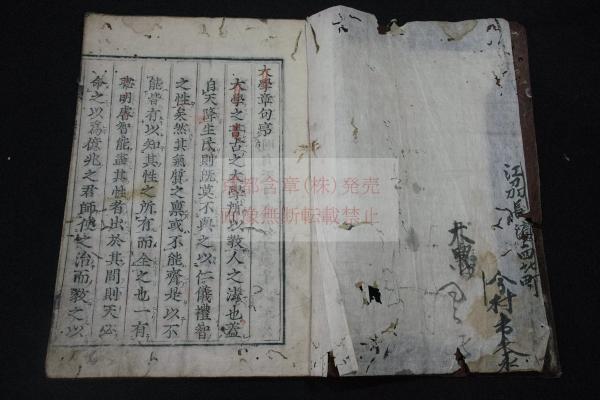 江刕長濱西北町
今村
大學
大學章句序
大學之書古之大學所以教人之法也蓋
自天降生民則既莫不與之以仁義禮智
之性矣然其氣質之稟或不能齊是以不
能皆有以知其性之所有而全之也一有
聰明睿智能盡其性者出於其間則天必
命之以爲億兆之君師使之治而教之以
京都含章(株)発売
画像無断転載禁止